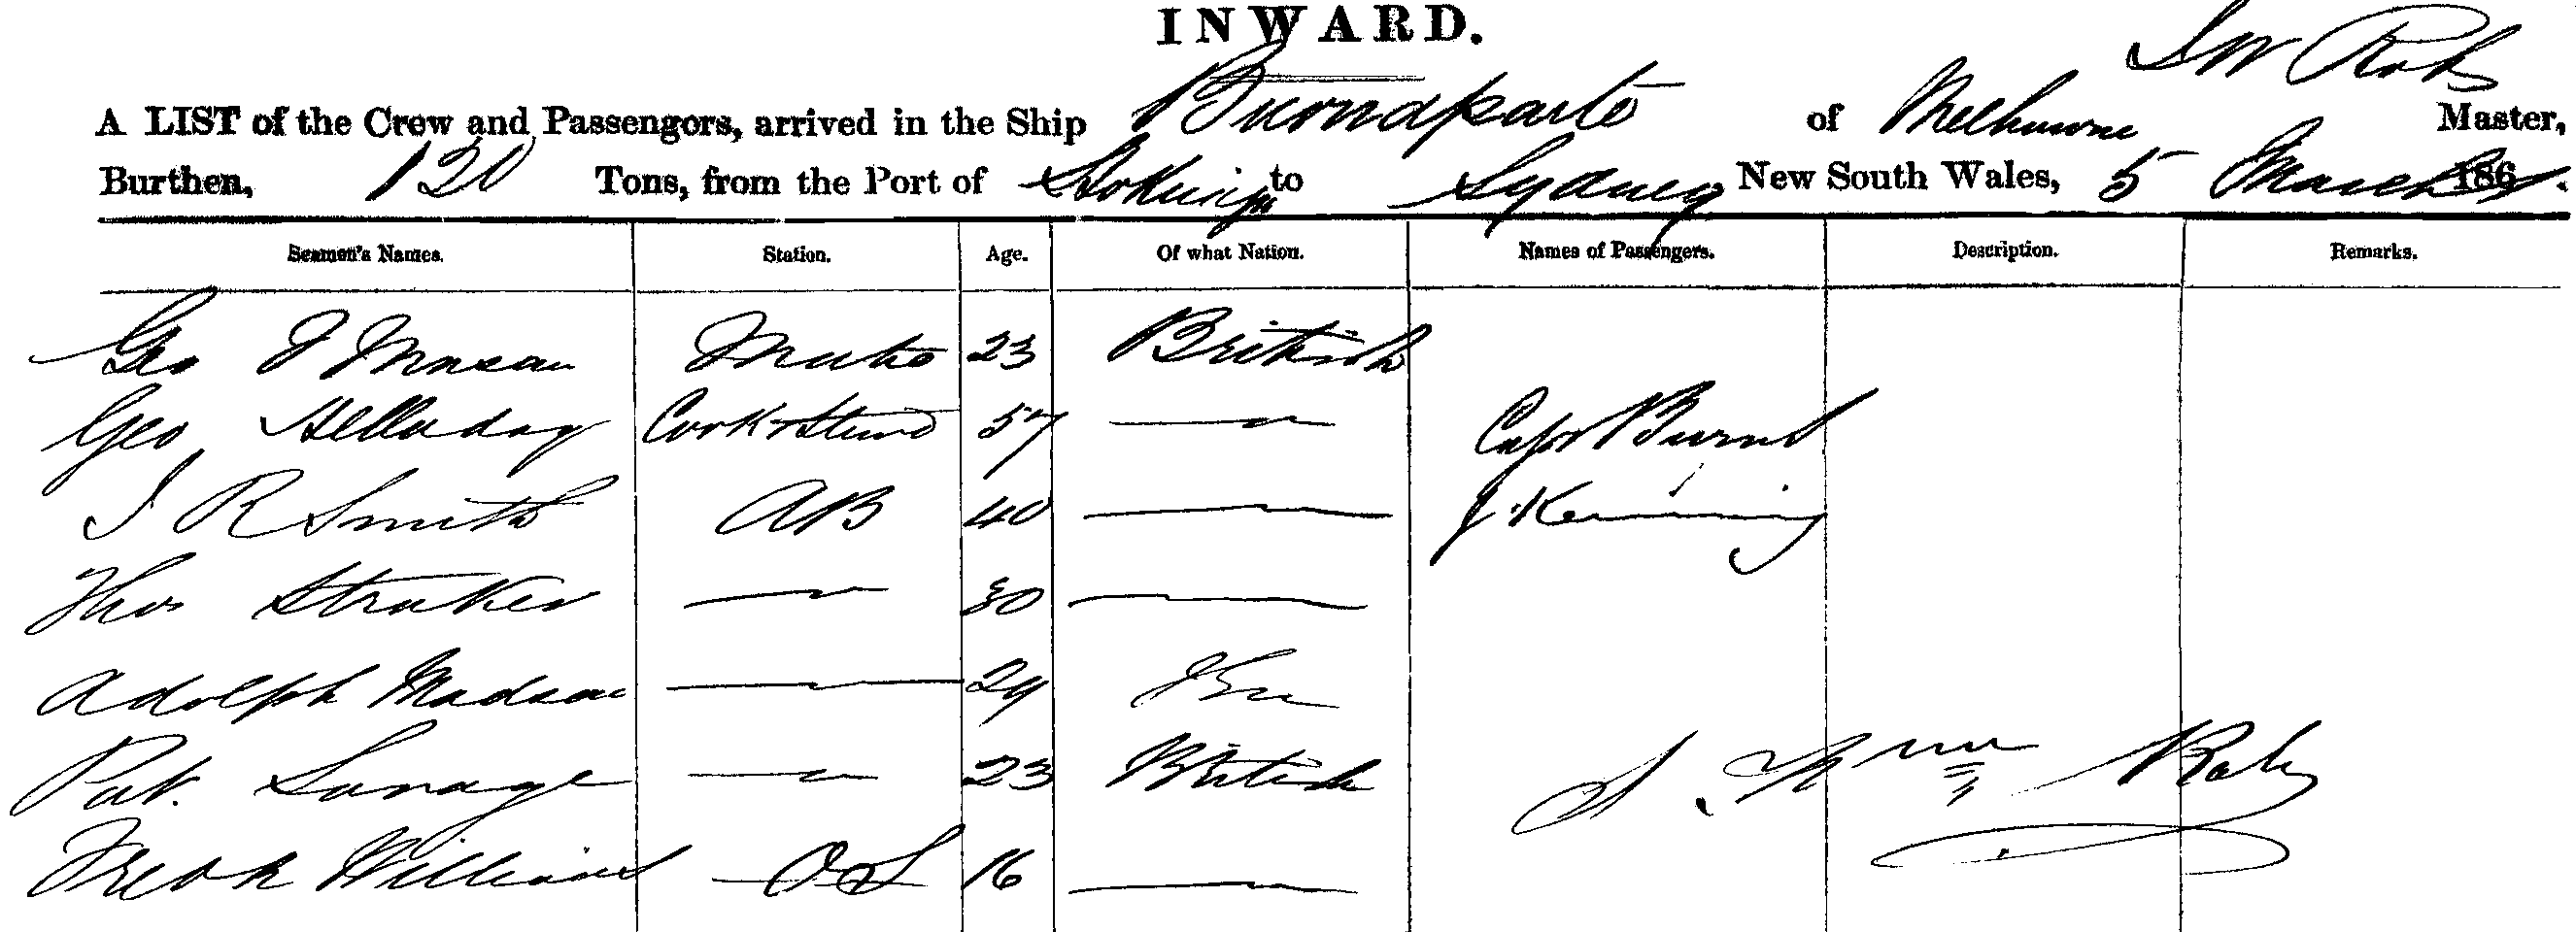 INWARD.
A LIST of the Crew and Passengers, arrived in the Ship Buonaparte of Melbourne J W Master,
Burthen, 120 Tons, from the Port of Hokianga to Sydney New South Wales, 5 March 186 .
Seamen's Names. Station. Age. Of what Nation. Names of Passengers. Description. Remarks.
Geo Mate 23 British
Geo Cook & Stewd 57 — Capt
J R Smith AB 40 — J.
Thos Straker — 30 —
Adolph Madsen — 24
Pat. Savage — 23 British
Fredk Williams OS 16 —